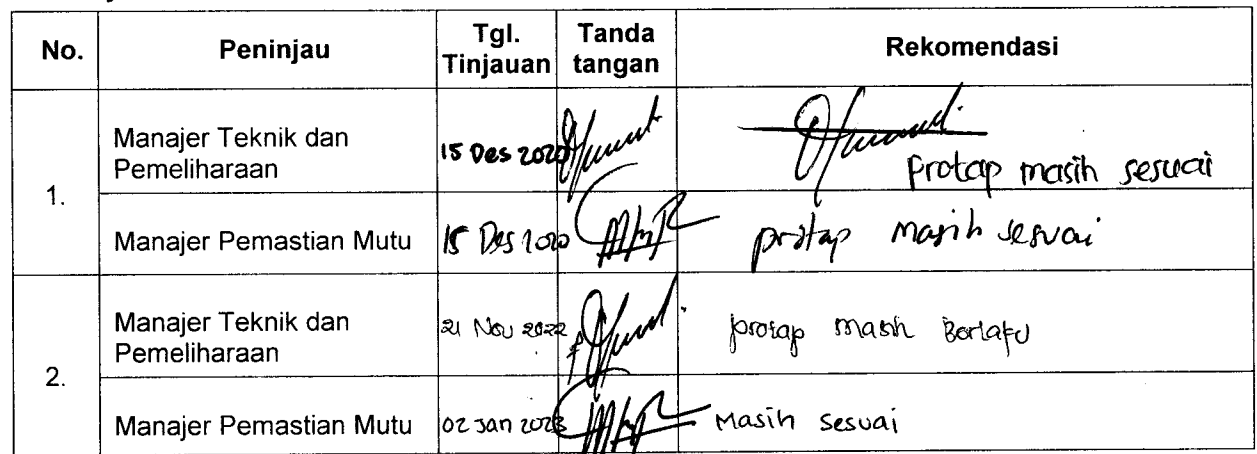 No.
Peninjau
Tgl.
Tinjauan
Tanda
tangan
Rekomendasi
1.
Manajer Teknik dan
Pemeliharaan
15 Des 2020
Protap masih sesuai
Manajer Pemastian Mutu
15 Des 2020
protap masih sesuai
2.
Manajer Teknik dan
Pemeliharaan
21 Nov 2022
protap masih Berlaku
Manajer Pemastian Mutu
02 Jan 2023
Masih sesuai